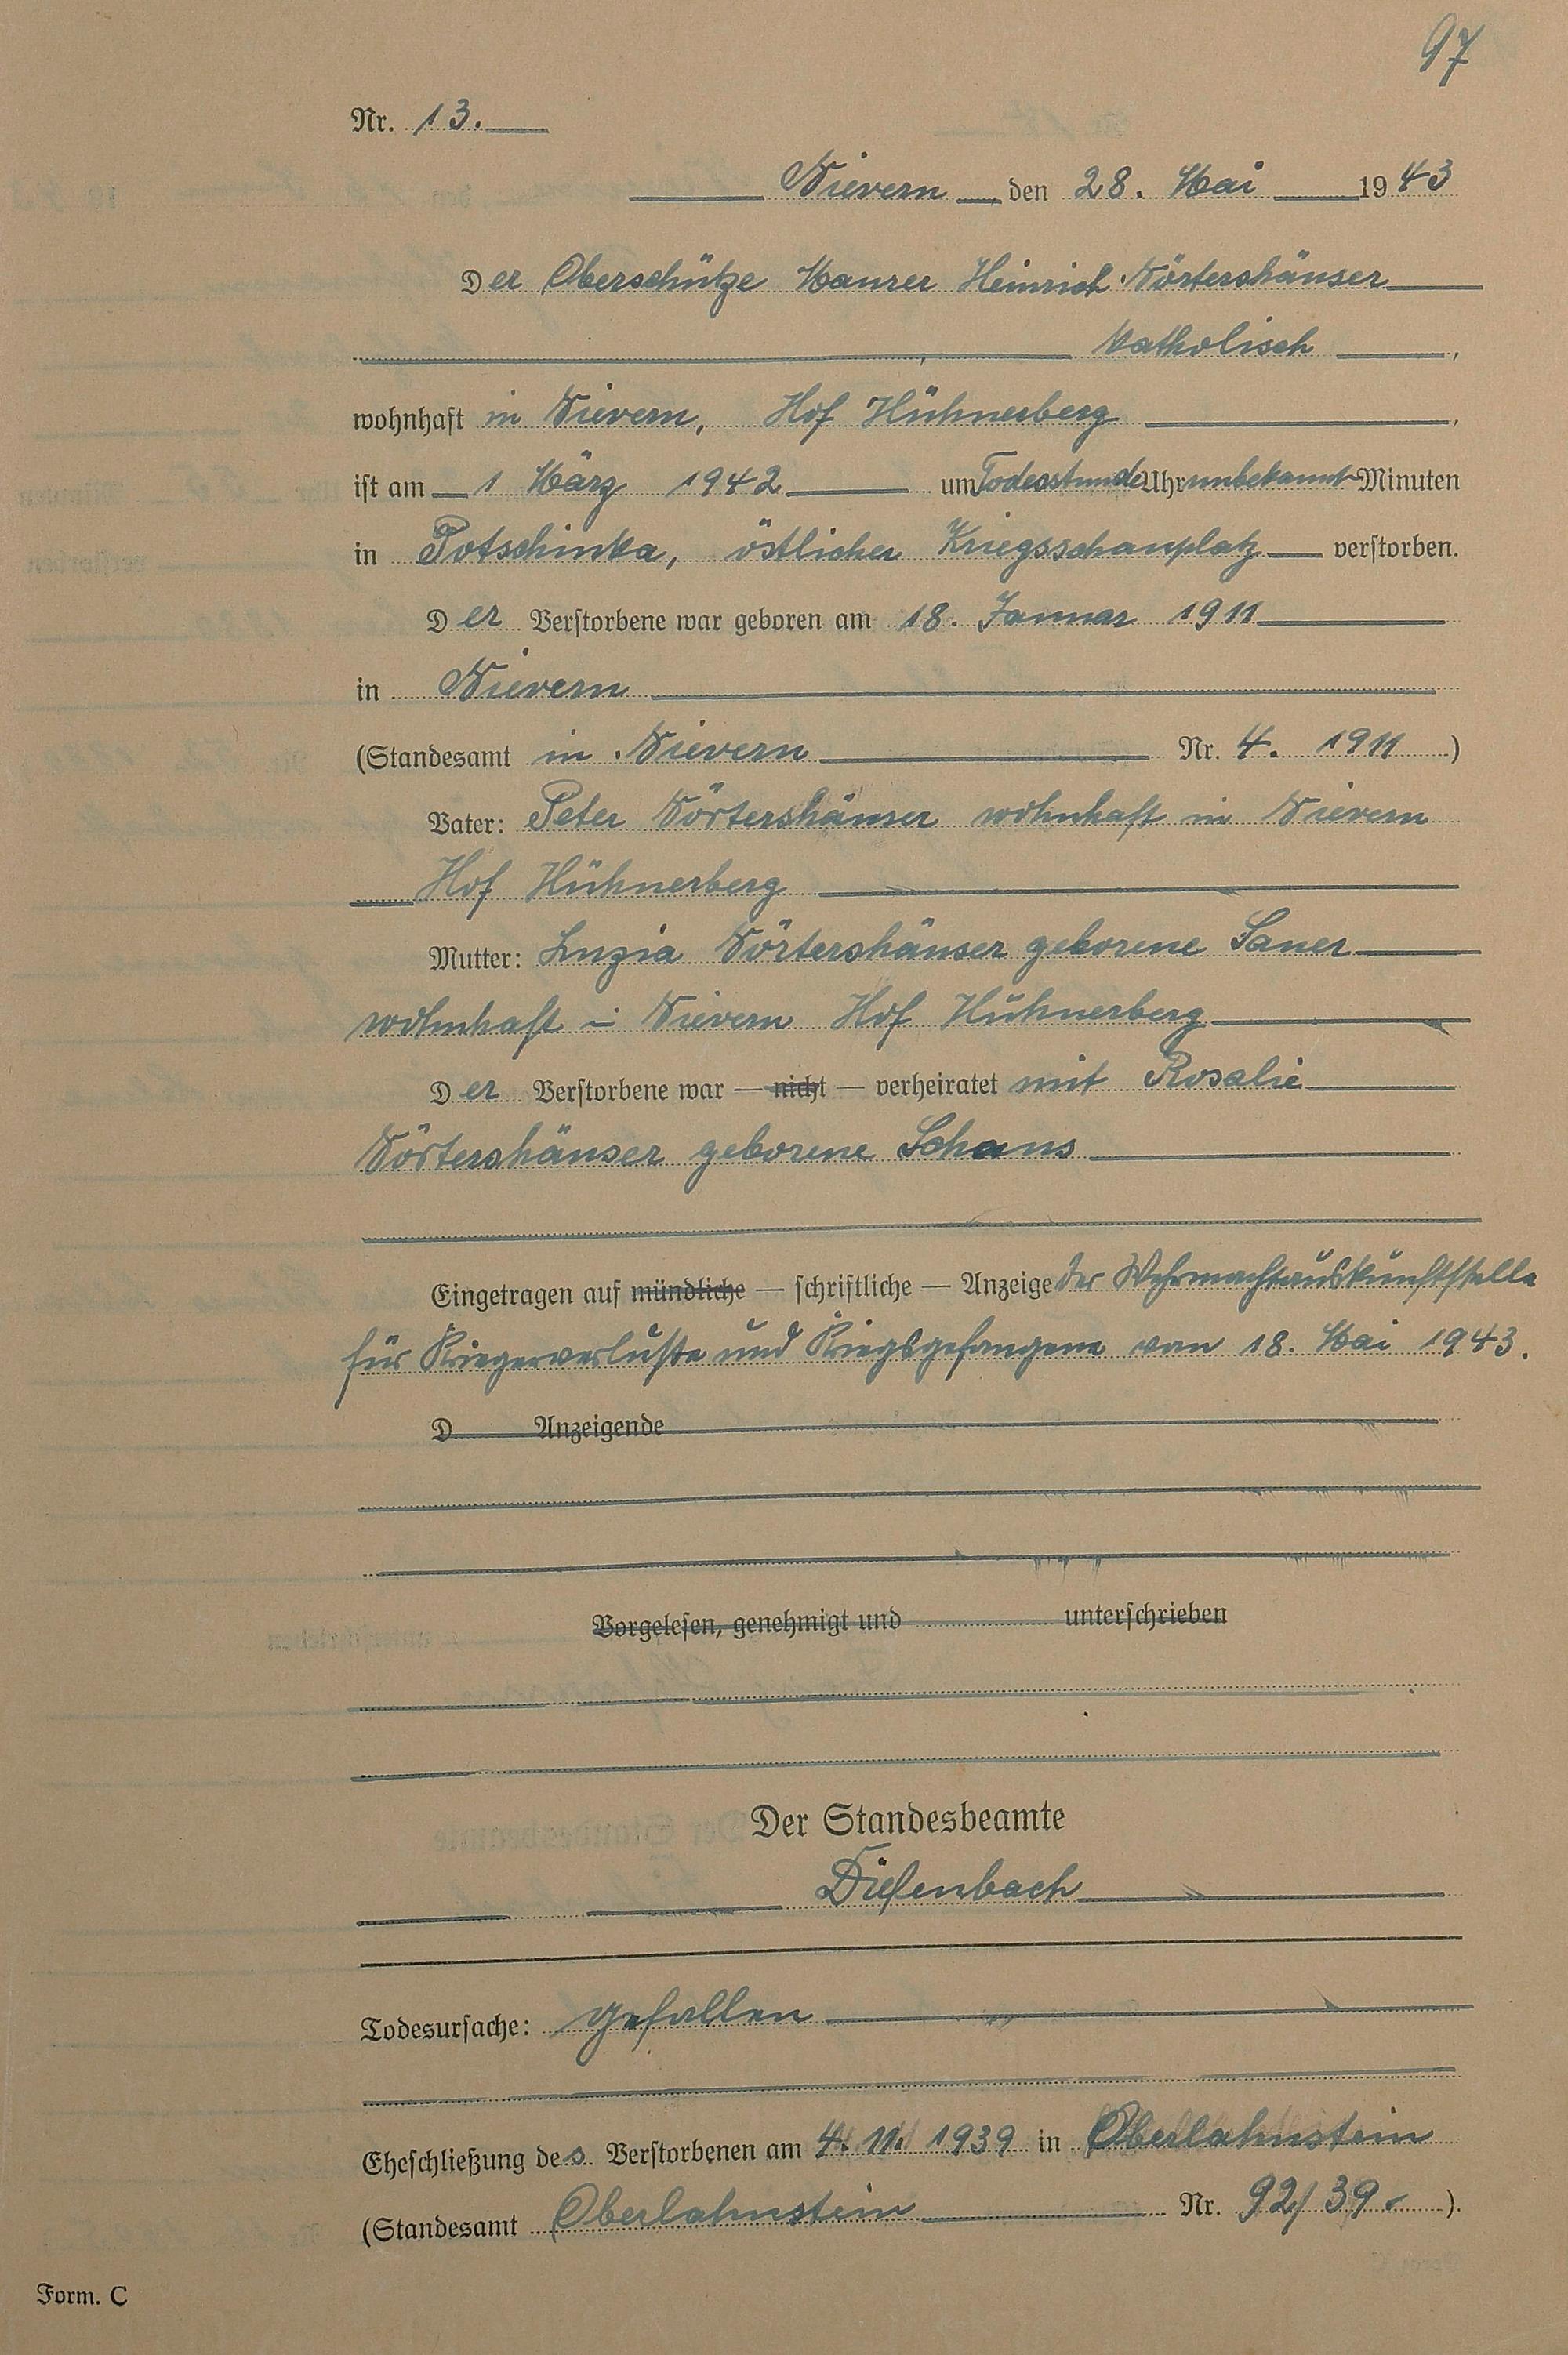 97
Nr. 13.
Nievern, den 28. Mai 1943
Der Oberschütze Maurer Heinrich Nörtershäuser
katholisch,
wohnhaft in Nievern, Hof Hühnerberg,
ist am 1 März 1942 um Todesstunde Uhr unbekannt Minuten
in Potschinka, östlicher Kriegsschauplatz verstorben.
Der Verstorbene war geboren am 18. Januar 1911
in Nievern
(Standesamt in Nievern Nr. 4. 1911)
Vater: Peter Nörtershäuser wohnhaft in Nievern
Hof Hühnerberg
Mutter: Luzia Nörtershäuser geborene Sauer
wohnhaft in Nievern Hof Hühnerberg
Der Verstorbene war — nicht — verheiratet mit Rosalie
Nörtershäuser geborene Schaus
Eingetragen auf mündliche — schriftliche — Anzeige der Wehrmachtauskunftstelle
für Kriegerverluste und Kriegsgefangene vom 18. Mai 1943.
D Anzeigende
Vorgelesen, genehmigt und unterschrieben
Der Standesbeamte
Diefenbach
Todesursache: gefallen
Eheschließung des Verstorbenen am 4. 11. 1939 in Oberlahnstein
(Standesamt Oberlahnstein Nr. 92/39.).
Form. C